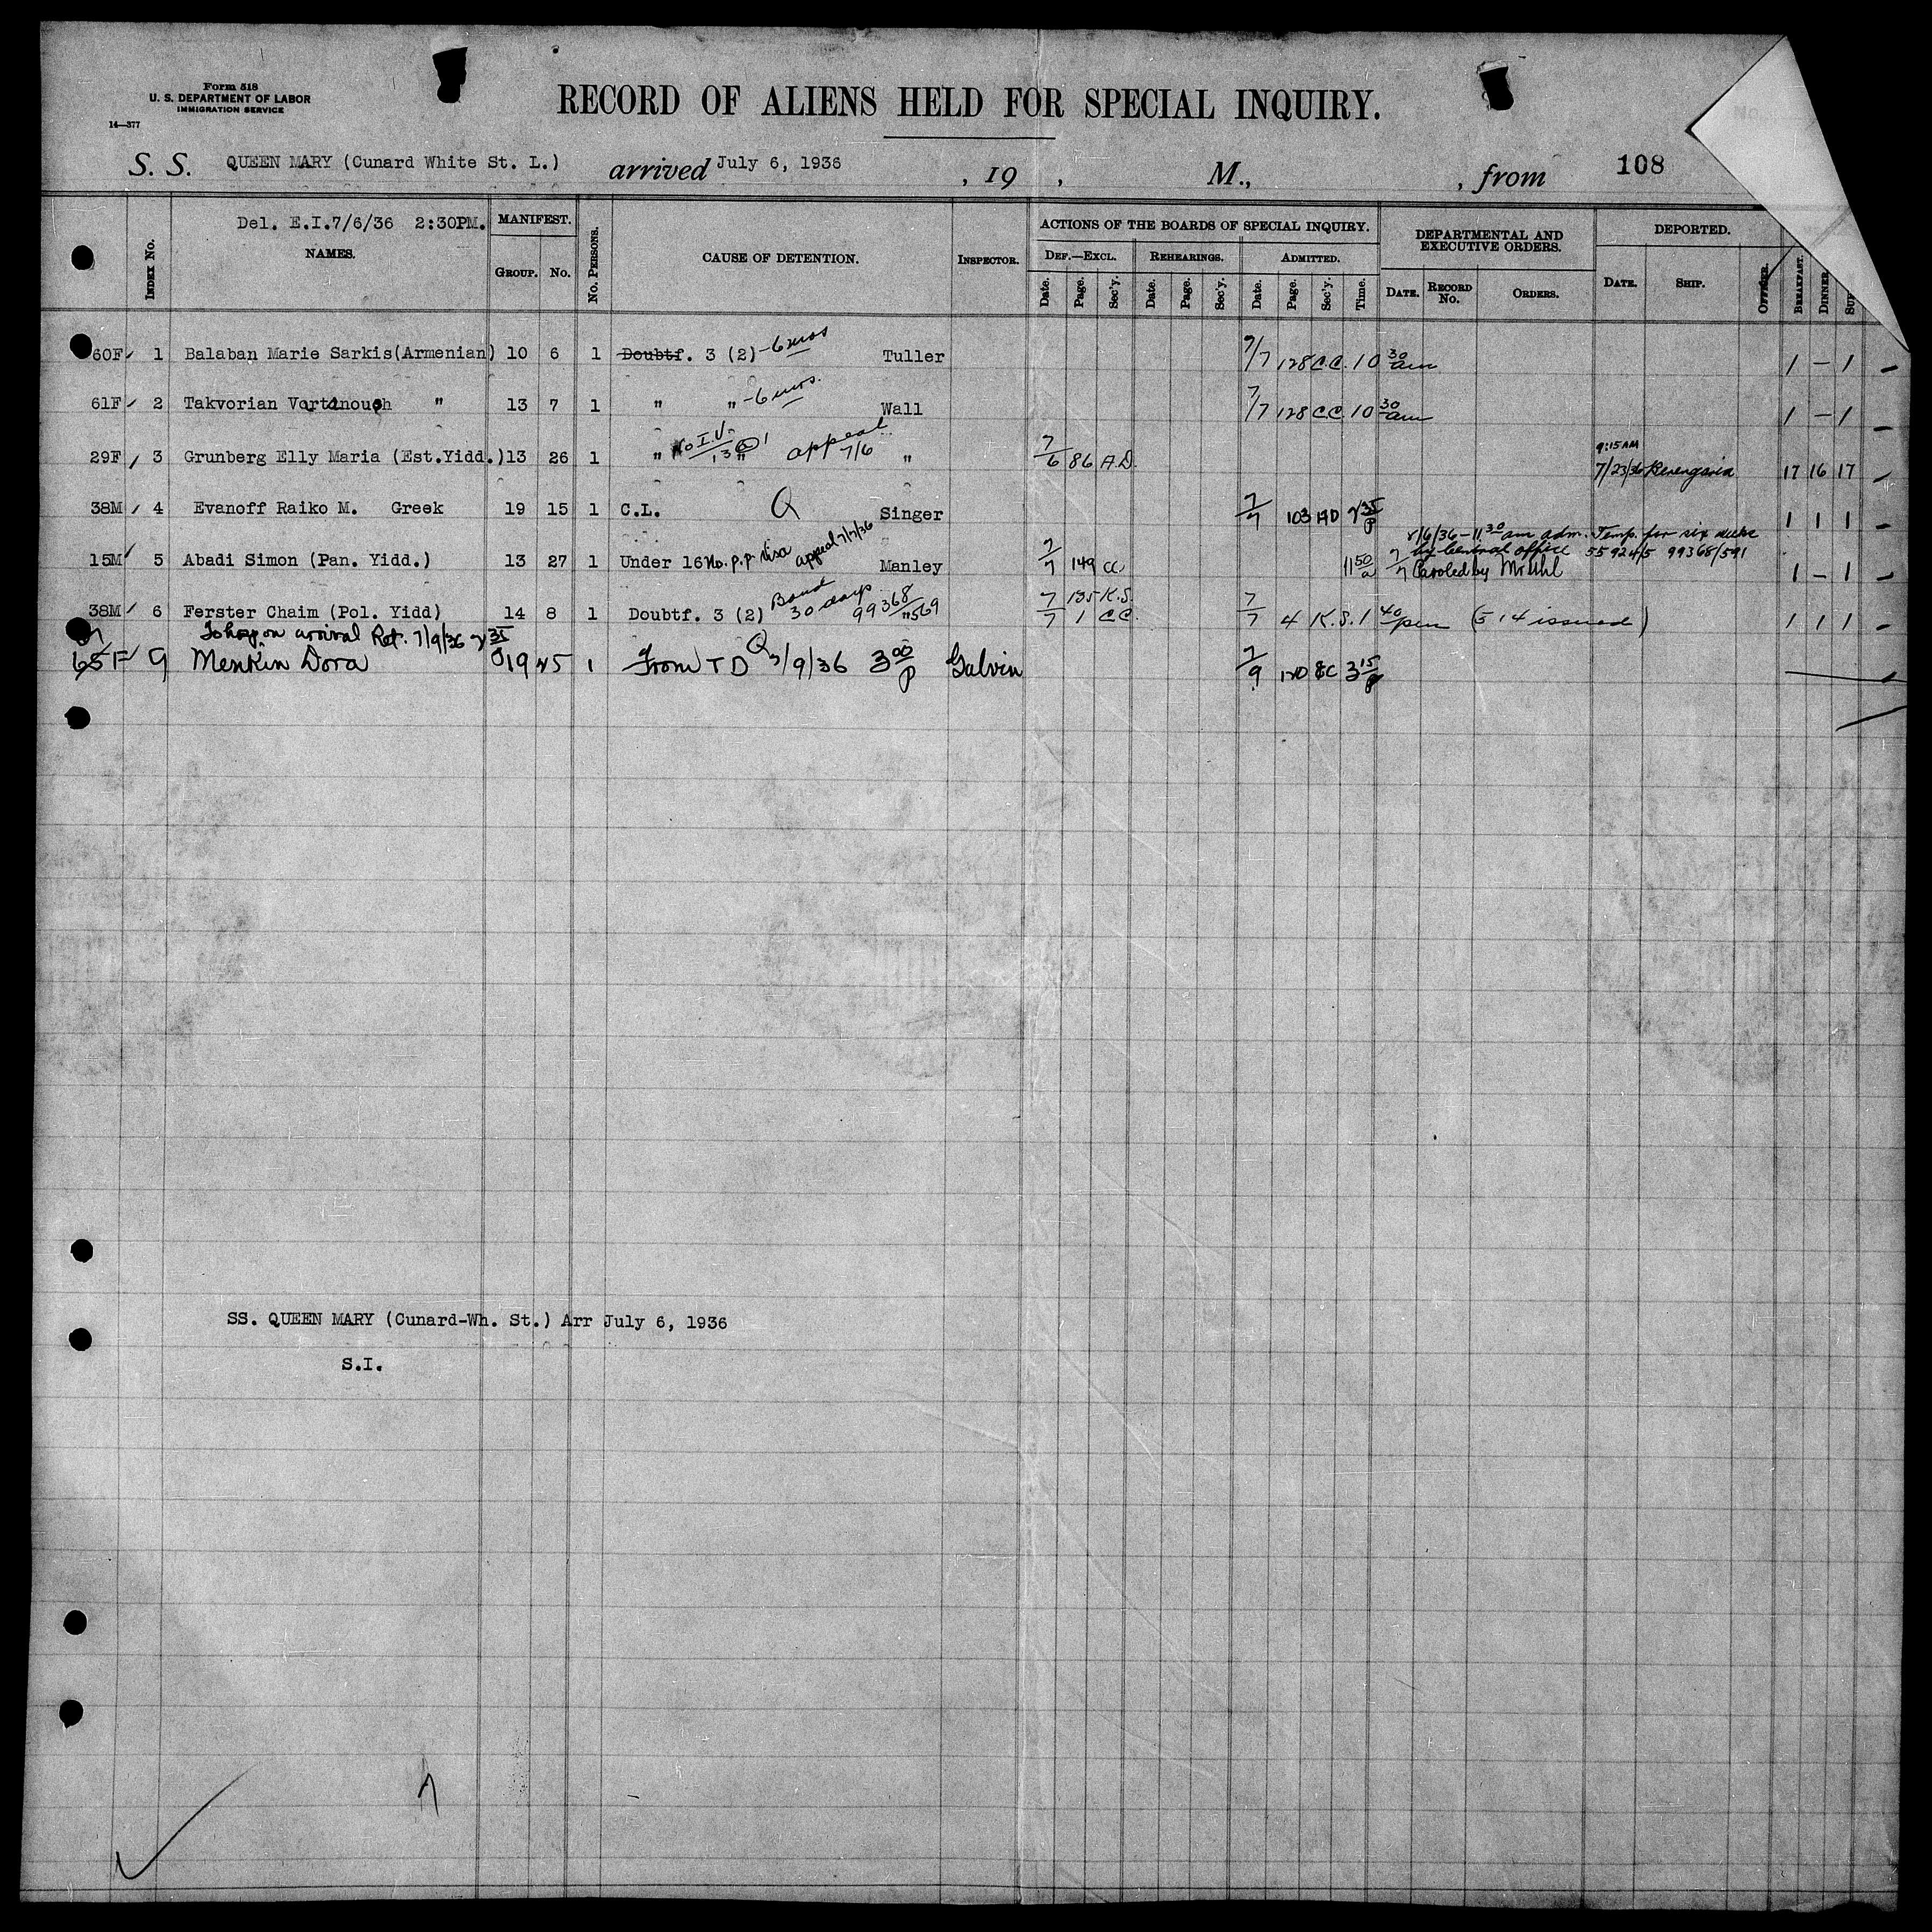 Form 518
U. S. DEPARTMENT OF LABOR
IMMIGRATION SERVICE
14—377
RECORD OF ALIENS HELD FOR SPECIAL INQUIRY.
S. S. QUEEN MARY (Cunard White St. L.) arrived July 6, 1936 , 19 , M., , from 108
Del. E.I.7/6/36 2:30PM.
INDEX No. NAMES. MANIFEST. GROUP. No. No. PERSONS. CAUSE OF DETENTION. INSPECTOR.
ACTIONS OF THE BOARDS OF SPECIAL INQUIRY.
DEF.—EXCL. REHEARINGS. ADMITTED.
Date. Page. Sec'y. Date. Page. Sec'y. Date. Page. Sec'y. Time.
DEPARTMENTAL AND EXECUTIVE ORDERS.
DATE. RECORD No. ORDERS.
DEPORTED.
DATE. SHIP. OFFICER. BREAKFAST. DINNER.
60F 1 Balaban Marie Sarkis(Armenian) 10 6 1 Doubtf. 3 (2) -6 mos Tuller 7/7 128 C.C. 10 30 am 1 — 1
61F 2 Takvorian Vartanoush " 13 7 1 " " -6 mos. Wall 7/7 128 C.C. 10 30 am 1 — 1
29F 3 Grunberg Elly Maria (Est.Yidd.) 13 26 1 " No I.V. 13 " appeal 7/6 " 7/6 86 A.D. 9:15 AM 7/23/36 Berengaria 17 16 17
38M 4 Evanoff Raiko M. Greek 19 15 1 C.L. Q Singer 7/7 103 HD 2 35 P 1 1 1
8/6/36 - 11 30 am adm. Temp. for six weeks
by Central office 55924/5 99368/591
15M 5 Abadi Simon (Pan. Yidd.) 13 27 1 Under 16 No. p.p. Visa appeal 7/7/36 Manley 7/7 149 CC 11 50 a 7/7 Paroled by 1 — 1
38M 6 Ferster Chaim (Pol. Yidd) 14 8 1 Doubtf. 3 (2) Bond 30 days 99368/569 " 7/7 135 K.S. 7/7 1 C.C. 7/7 4 K.S. 1 40 pm (514 issued) 1 1 1
To hosp on arrival Ret. 7/9/36 2 35
65F 9 Menkin Dora 19 25 1 From T D Q 7/9/36 3 00 P Galvin 7/9 120 3 15 P
SS. QUEEN MARY (Cunard-Wh. St.) Arr July 6, 1936
S.I.